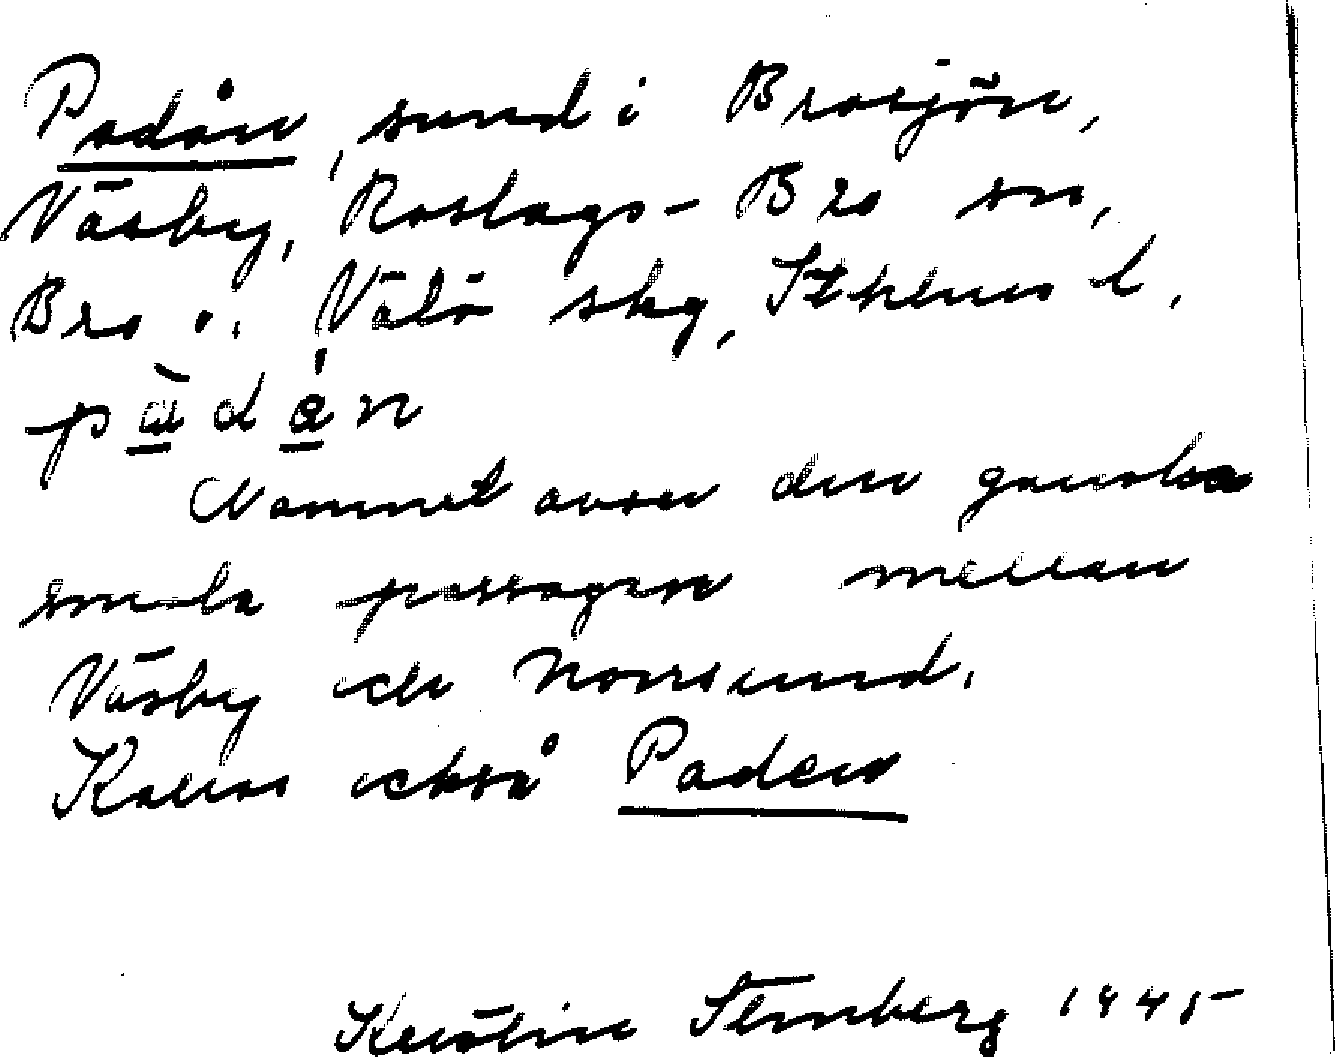 Padån, sund i Brosjön,
Väsby, Roslags-Bro sn,
Bro o. Vätö skg, Sthlms l.
pàdán
Namnet avser den ganska
smala passagen mellan
Väsby och Norrsund.
Kallas också Paden
Stenberg 1945